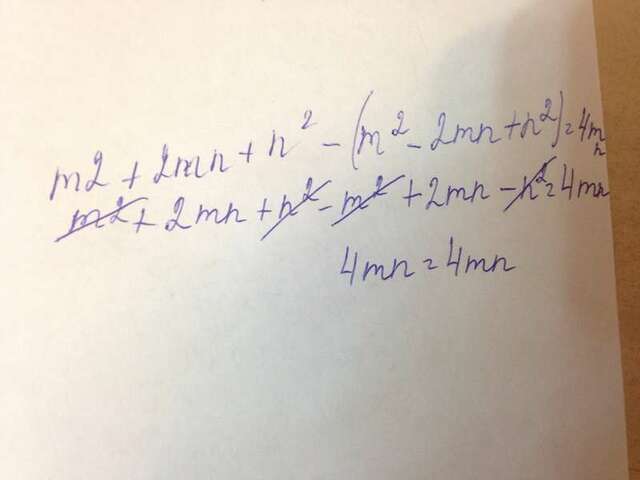 m2 + 2mn + n² - (m² - 2mn + n²) = 4mn
m² + 2mn + n² - m² + 2mn - n² = 4mn
4mn = 4mn